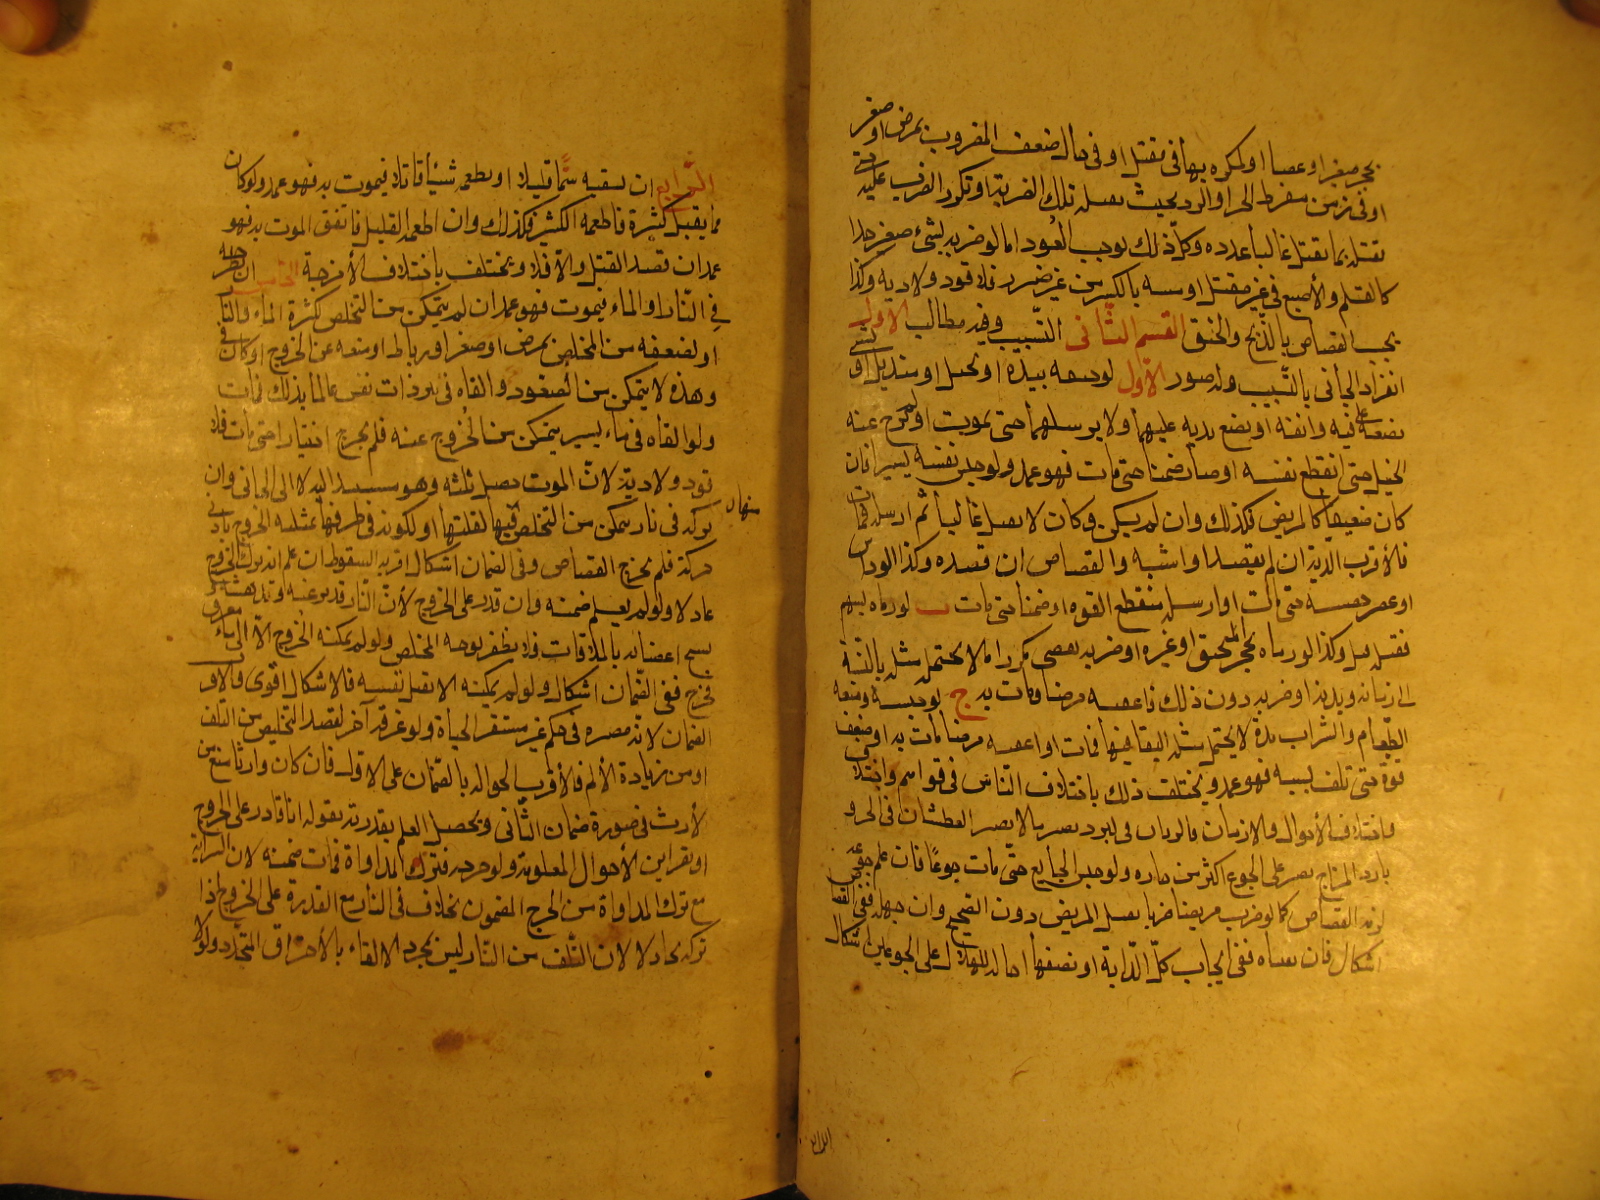 بحجر صغير او عصا او لكره بها في مقتل او في حال ضعف المضروب بمرض او صغر
او في زمن مفرط الحر او البرد بحيث يقتله تلك الضربة او تكرر الضرب عليه حتى
قتله بما يقتل غالبا عدده وكل ذلك يوجب القود اما لو ضربه بشيء صغير جدا
كالقلم والاصبع في غير مقتل او مسه بالكبير من غير ضرر فلا قود ولا دية وكذا
يجب القصاص بالذبح والخنق القسم الثاني التسبيب وفيه مطالب الاول
انفراد الجاني بالتسبيب وله صور الاول لو خنقه بيده او بحبل او منديل او بشيء
يضعه على فيه وانفه او يضع يديه عليهما ولا يرسلهما حتى يموت او لم يرخ عنه
الحبل حتى انقطع نفسه او صار ضمنا حتى مات فهو عمد ولو حبس نفسه يسيرا فان
كان ضعيفا كالمريض فكذلك وان لم يكن وكان لا يقتل غالبا ثم ارسله فمات
فالاقرب الدية ان لم يقصد او اشتبه والقصاص ان قصده وكذا لو داس
او عصر خصيتيه حتى مات او ارسله منقطع القوة او ضمنا حتى مات ب لو رماه بسهم
فقتل قتل وكذا لو رماه بحجر المنجنيق او غيره او ضربه بعصى مكررا ما لا يحتمل مثله بالنسبة
الى زمانه وبدنه او ضربه دون ذلك فاعقبه مرضا ومات به ج لو حبسه ومنعه
الطعام والشراب مدة لا يحتمل مثله البقاء فيها فمات او اعقبه مرضا مات به او ضعف
قوة حتى تلف بسببه فهو عمد ويختلف ذلك باختلاف الناس في قواهم واختلاف
واختلاف الاحوال والازمان فالريان في البرد يصبر ما لا يصبر العطشان في الحر و
بارد المزاج يصبر على الجوع اكثر من حاره ولو حبس الجايع حتى مات جوعا فان علم جوعه
لزمه القصاص كما لو ضرب مريضا ضربا يقتل المريض دون الصحيح وان جهله ففي القصاص
اشكال فان نفيناه ففي ايجاب كل الدية او نصفها احالة للهلاك على الجوعين اشكال
الرابع
الرابع ان يسقيه سما قتيلا او يطعمه شيئا قاتلا فيموت به فهو عمد ولو كان
مما يقتل كثيره فاطعمه الكثير فكذلك وان اطعمه القليل فاتفق الموت به فهو
عمد ان قصد القتل والا فلا ويختلف باختلاف الامزجة الخامس ان يطرحه
في النار او الماء فيموت فهو عمد ان لم يتمكن من التخلص لكثرة الماء والنار
او لضعفه من التخلص بمرض او صغر او رباط او منعه عن الخروج او كان في
وهدة لا يتمكن من الصعود او القاه في بئر ذات نفس عالما بذلك فمات
ولو القاه في ماء يسير يتمكن من الخروج عنه فلم يخرج اختيارا حتى مات فلا
قود ولا دية لان الموت حصل بلبثه وهو مستند اليه لا الى الجاني وان
تركه في نار يتمكن من التخلص منها لقلتها او لكونه في طرفها يمكنه الخروج بادنى
حركة فلم يخرج فلا قصاص وفي الضمان اشكال اقربه السقوط ان علم انه ترك الخروج
عادلا ولو لم يعلم ضمنه وان قدر على الخروج لان النار قد يرعبه وتدهشه و
يتشنج اعضائه بالملاقات فلا يظفر بوجه المخلص ولو لم يمكنه الخروج الا الى ماء مغرق
فخرج ففي الضمان اشكال ولو لم يمكنه الا بقتل نفسه فالاشكال اقوى والاقرب
الضمان لانه صيره في حكم غير مستقر الحياة ولو غرقه آخر لقصد التخليص من التلف
او من زيادة الالم فالاقرب الحوالة بالضمان على الاول فان كان وارثا منع من
الارث في صورة ضمان الثاني ويحصل العلم بقدرته بقوله انا قادر على الخروج
او بقراين الاحوال المعلومة ولو جرحه فترك المداواة فمات ضمنه لان السراية
مع ترك المداواة من الجرح المضمون بخلاف في النار مع القدرة على الخروج اذا
تركه تخاذلا لان التلف من النار ليس بمجرد الالقاء بل بالاحراق المتجدد ولولا